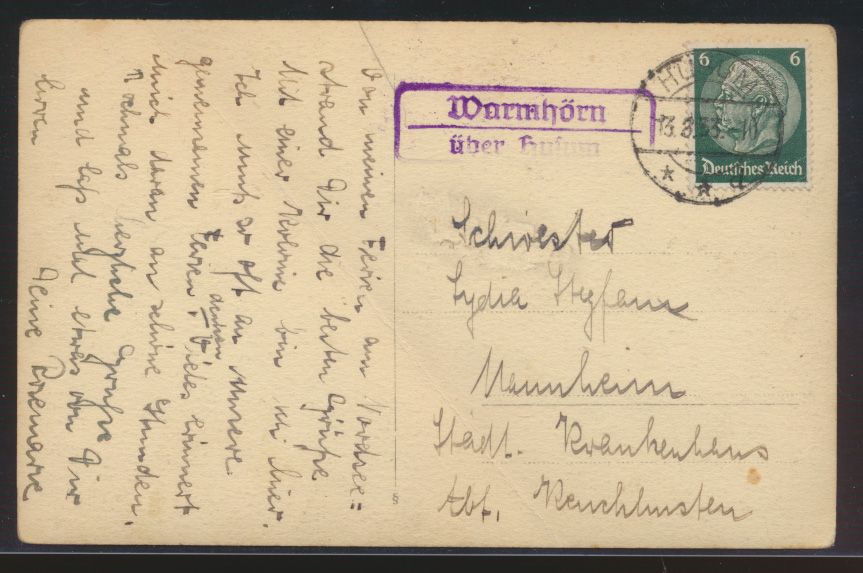 Von meinen Ferien am Nordsee=
strand Dir die besten Grüße
Mit einer Kolonie bin ich hier.
Ich muß so oft an unsere
gemeinsamen Ferien denken. Vieles erinnert
mich daran an schöne Stunden.
Nochmals herzliche Grüße
und laß mal etwas von Dir
hören
Deine Rosemarie
Warmhörn
über Husum
HUSUM
13.8.35.-10
* * d
6 6
Deutsches Reich
Schwester
Lydia
Mannheim
Städt. Krankenhaus
Abt.